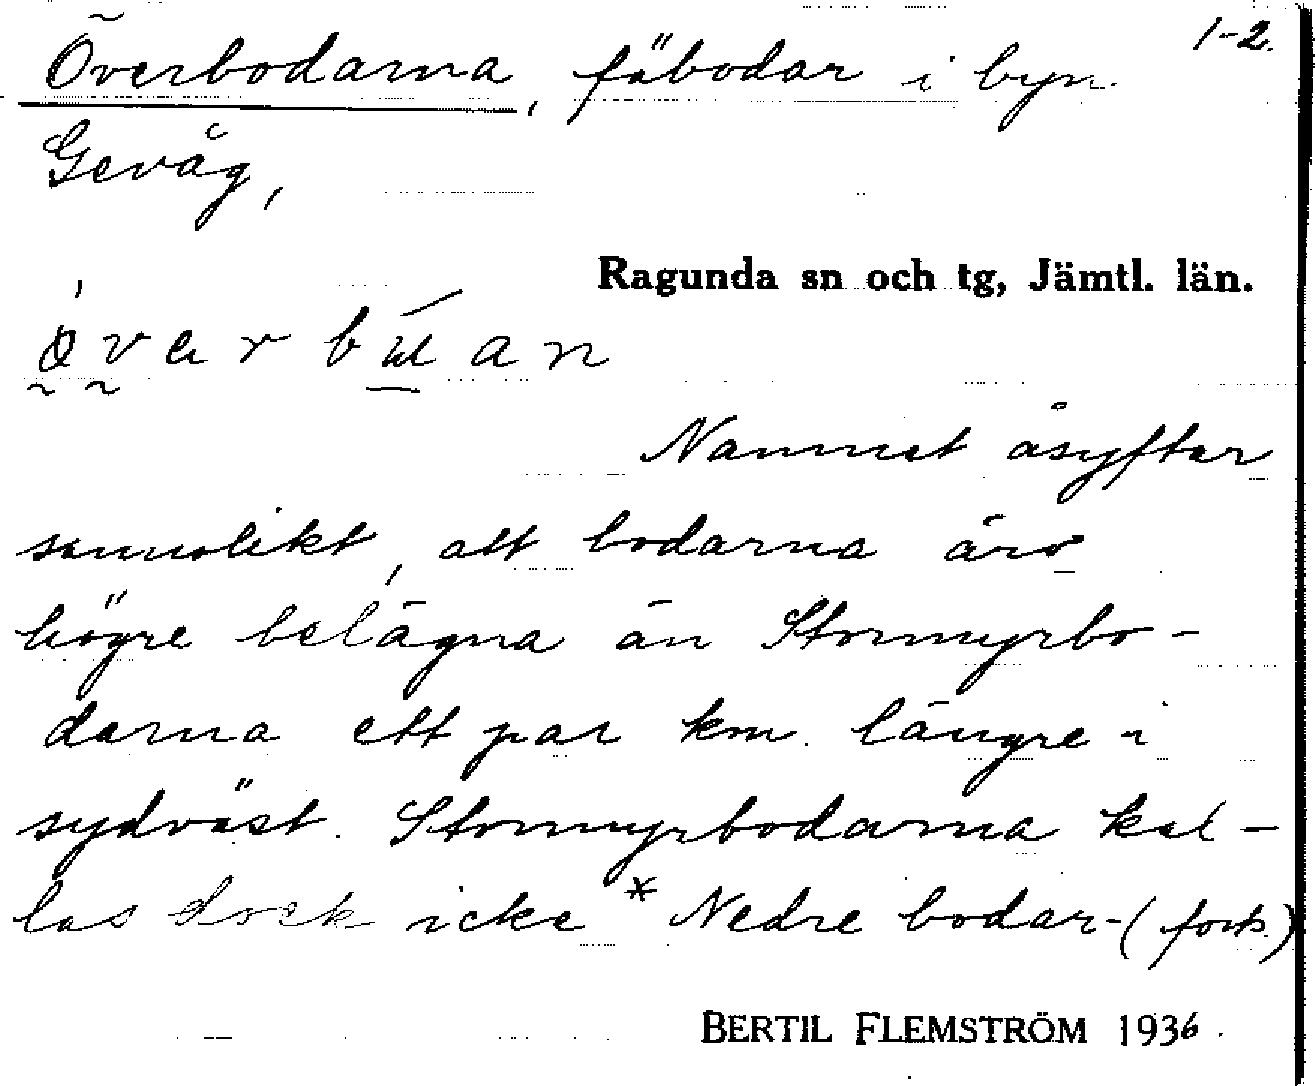 1-2.
Överbodarna, fäbodar i byn
Gevåg,
Ragunda sn och tg, Jämtl. län.
Namnet åsyftar
sannolikt, att bodarna äro
högre belägna än Stormyrbo-
darna ett par km. längre i
sydväst. Stormyrbodarna kal-
las dock icke *Nedre bodar- (forts.)
BERTIL FLEMSTRÖM 1936.